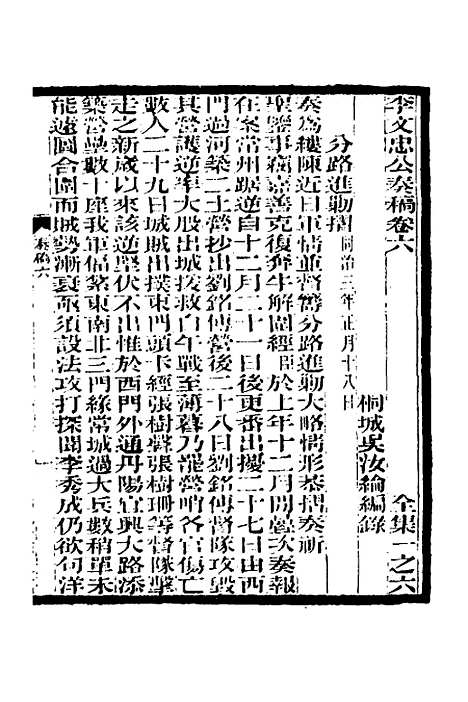 李文忠公奏稿卷六　全集一之六
桐城吳汝綸編錄
分路進勦摺 同治三年正月十八日
奏爲縷陳近日軍情並督籌分路進勦大略情形恭摺奏祈
聖鑒事竊嘉善克復奔牛解圍經臣於上年十二月間疊次奏報
在案常州踞逆自十二月二十一日後更番出擾二十七日由西
門過河築二土營抄出劉銘傳營後二十八日劉銘傳督隊攻毀
其營護逆率大股出城援救自午戰至薄暮乃罷營哨各官傷亡
數人二十九日城賊出撲東門頭卡經張樹聲張樹珊等督隊擊
走之新歲以來該逆堅伏不出惟於西門外通丹陽宜興大路添
築營壘數十座我軍偪紮東南北三門緣常城過大兵數稍單未
能遽圖合圍而賊勢漸衰亟須設法攻打探聞李秀成仍欲句洋
奏稿六
一